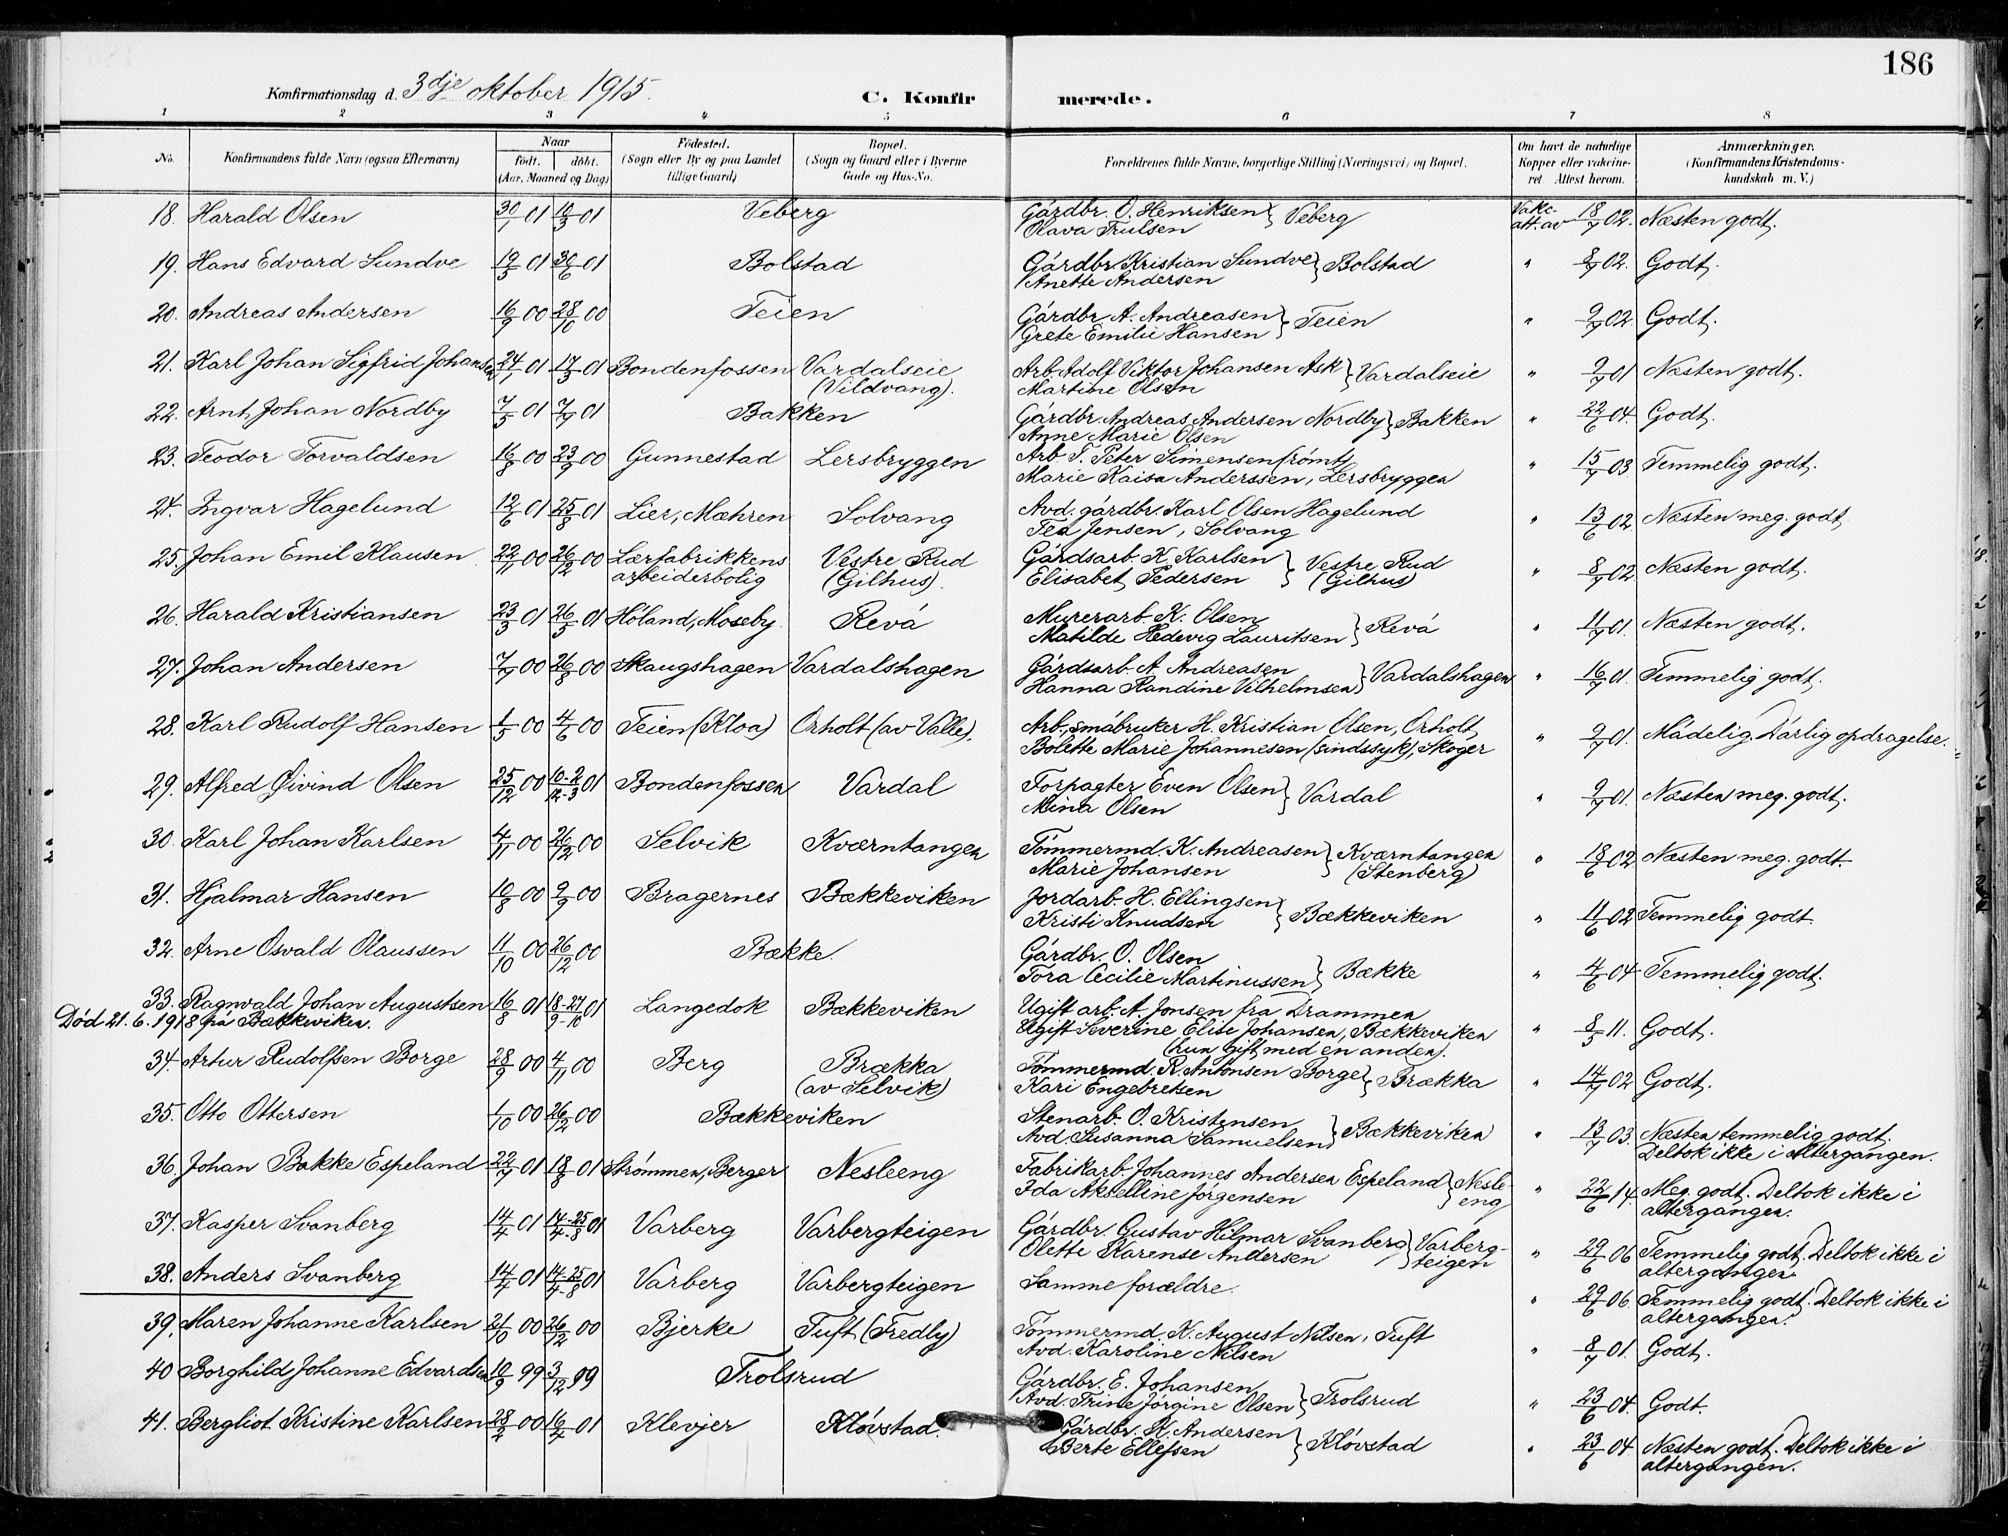 186
Konfirmationsdag d. 3dje oktober 1915.
C. Konfir merede.
1 2 3 4 5 6 7 8
No. Konfirmandens fulde Navn (ogsaa Efternavn) Naar født. døbt. (Aar, Maaned og Dag) Fødested. (Sogn eller By og paa Landet tillige Gaard) Bopæl. (Sogn og Gaard eller i Byerne Gade og Hus-No. Forældrenes fulde Navne, borgerlige Stilling (Næringsvei) og Bopæl. Om havt de naturlige Kopper eller vakcineret Attest herom. Anmerkninger. (Konfirmandens Kristendomskundskab m. V.)
18. Harald Olsen 30/1 01 10/3 01 Veberg Gårdbr. O. Henriksen Veberg Vakc. att. av 18/7 02. Næsten godt.
Olava Trulsen
19. Hans Edvard Sundve 19/5 01 30/6 01 Bolstad Gårdbr. Kristian Sundve Bolstad " 8/7 02. Godt.
Anette Andersen
20. Andreas Andersen 16/9 00 28/10 00 Teien Gårdbr. A. Andreasen Teien " 9/7 02. Godt.
Grete Emilie Hansen
21. Karl Johan Sigfrid Johansen 24/1 01 17/3 01 Bondenfossen Vardalseie Arb. Adolf Viktor Johansen Ask Vardalseie " 9/7 01 Næsten godt.
(Vildvang). Martine Olsen
22. Arnt Johan Nordby 7/5 01 7/7 01 Bakken Gårdbr. Andreas Andersen Nordby Bakken " 22/6 04. Godt.
Anne Marie Olsen
23. Teodor Torvaldsen 16/8 00 23/9 00 Gunnestad Lersbryggen Arb. T. Peter Simensen (rømt) " 15/7 03 Temmelig godt.
Marie Kaisa Anderssen, Lersbryggen
24. Ingvar Hagelund 12/6 01 25/8 01 Lier, Mæhren Solvang Avd. gårdbr. Karl Olsen Hagelund " 13/6 02 Næsten meg. godt.
Tea Jensen, Solvang
25. Johan Emil Klausen 22/11 00 26/12 00 Lærfabrikkens Vestre Rud Gårdsarb. K. Karlsen Vestre Rud " 8/7 02 Næsten godt.
arbeiderbolig (Gilhus). Elisabet Pedersen (Gilhus)
26. Harald Kristiansen 23/3 01 26/5 01 Høland, Moseby. Revå Murerarb. K. Olsen Revå " 11/7 01. Næsten godt.
Matilde Hedevig Lauritsen
27. Johan Andersen 7/7 00 26/8 00 Skaugshagen Vardalshagen Gårdsarb. A. Andreasen Vardalshagen " 16/7 01. Temmelig godt.
Hanna Randine Vilhelmsen
28. Karl Rudolf Hansen 1/5 00 4/6 00 Teien (Kloa) Orholt (av Valle). Arb., småbruker H. Kristian Olsen, Orholt, " 9/7 01. Mådelig. Dårlig opdragelse.
Bolette Marie Johannesen (sindssyk), Skoger
29. Alfred Øivind Olsen 25/12 00 10-2/12-3 01 Bondenfossen Vardal Forpagter Even Olsen Vardal " 9/7 01. Næsten meg. godt.
Mina Olsen
30. Karl Johan Karlsen 4/11 00 26/12 00 Selvik Kværntangen Tømmermd. K. Andreasen Kværntangen " 18/6 02 Næsten meg. godt.
Marie Johansen (Stenberg)
31. Hjalmar Hansen 10/8 00 9/9 00 Bragernes Bækkeviken Jordarb. H. Ellingsen Bækkeviken " 11/6 02 Temmelig godt.
Kristi Knudsen
32. Arne Osvald Olaussen 11/10 00 26/12 00 Bække. Gårdbr. O. Olsen Bække " 4/6 04 Temmelig godt.
Tora Cecilie Martinussen
33. Ragnvald Johan Augustsen 16/8 01 18-27/9-10 01 Langedok Bækkeviken Ugift arb. A. Jonsen fra Drammen " 8/5 11. Godt.
Død 21.6.1918 på Bækkeviken. Ugift Severine Elise Johansen, Bækkeviken
(hun gift med en anden).
34. Artur Rudolfsen Borge 28/9 00 4/11 00 Berg Brækka Tømmermd. R. Antonsen Borge Brækka " 14/7 02 Godt.
(av Selvik) Kari Engebretsen
35. Otto Ottersen 1/10 00 26/12 00 Bækkeviken Stenarb. O. Kristensen, Bækkeviken " 13/7 03. Næsten temmelig godt.
Avd. Susanna Samuelsen Deltok ikke i altergangen.
36. Johan Bakke Espeland 22/7 01 18/8 01 Strømmen, Berger Nesleeng Fabrikarb. Johannes Andersen Espeland Nesle- " 22/6 14. Meg. godt. Deltok ikke i
Ida Akselline Jørgensen eng altergangen.
37. Kasper Svanberg 14/4 01 14-25/4-8 01 Varberg Varbergteigen Gårdbr. Gustav Hilmar Svanberg Varberg- " 29/6 06 Temmelig godt. Deltok ikke i
Olette Karense Andersen teigen altergangen.
38. Anders Svanberg 14/4 01 14-25/4-8 01 Varberg Varbergteigen Samme forældre. " 29/6 06. Temmelig godt. Deltok ikke i
altergangen.
39. Maren Johanne Karlsen 21/10 00 26/12 00 Bjerke Tuft (Fredly) Tømmermd. K. August Nilsen, Tuft " 8/7 01. Godt.
Avd. Karoline Nilsen
40 Borghild Johanne Edvardsen 10/9 99 3/12 99 Trolsrud Gårdbr. E. Johansen, Trolsrud " 23/6 04. Godt.
Avd. Trine Jørgine Olsen
41. Bergliot Kristine Karlsen 28/2 00 16/4 01 Klevjer Kløvstad. Gårdbr. K. Andersen Kløvstad " 23/6 04 Næsten godt. Deltok ikke i
Berte Ellefsen altergangen.